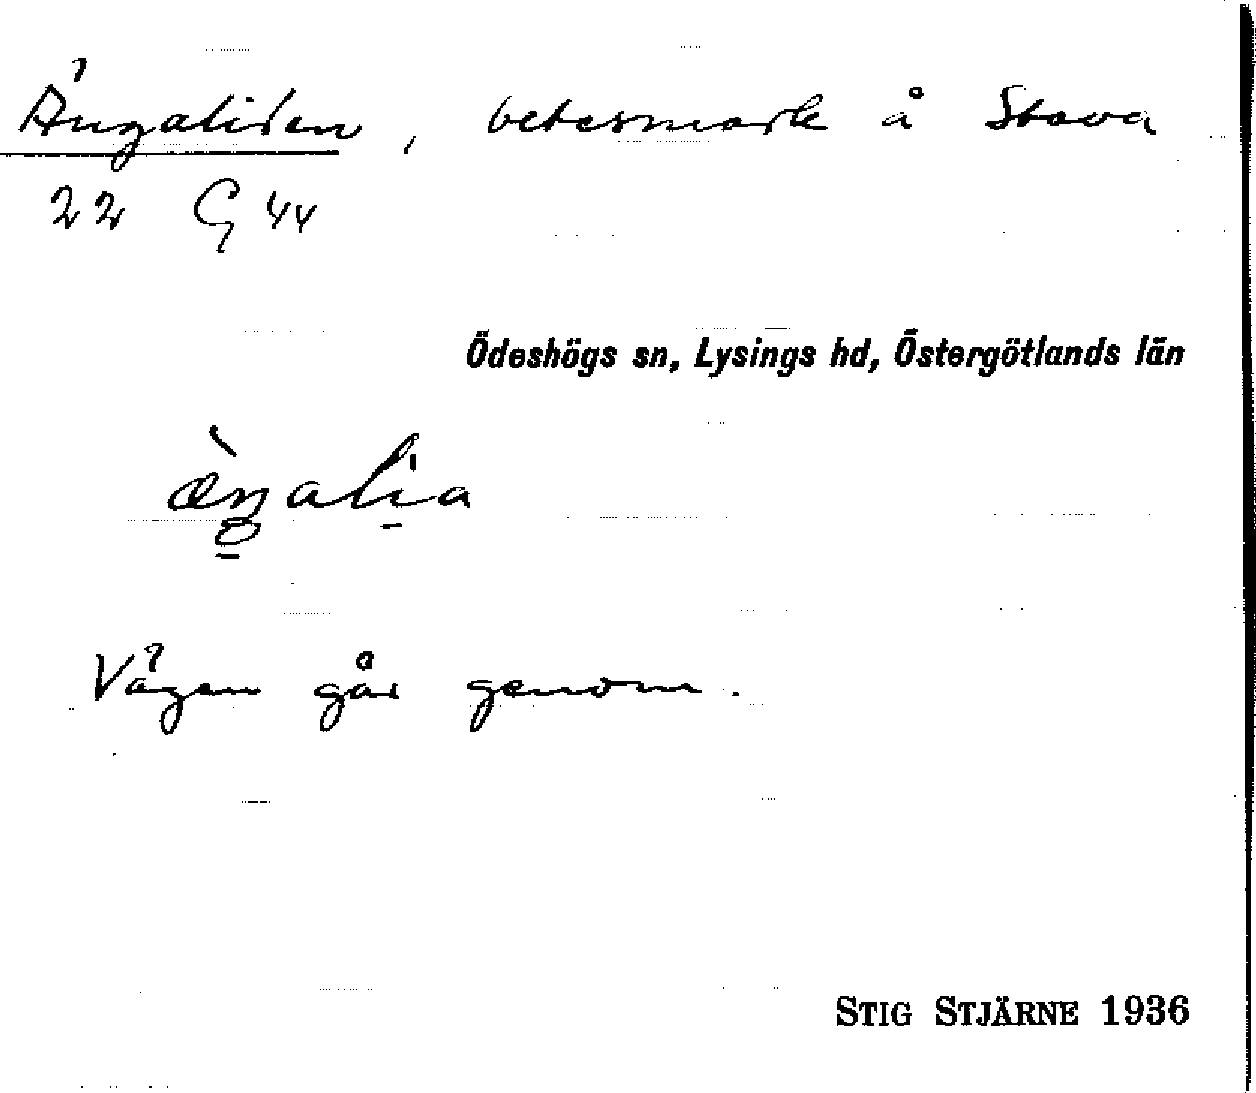 Ängaliden, betesmark å Stava
22 G 44
Ödeshögs sn, Lysings hd, Östergötlands län
Vägen går genom.
STIG STJÄRNE 1936